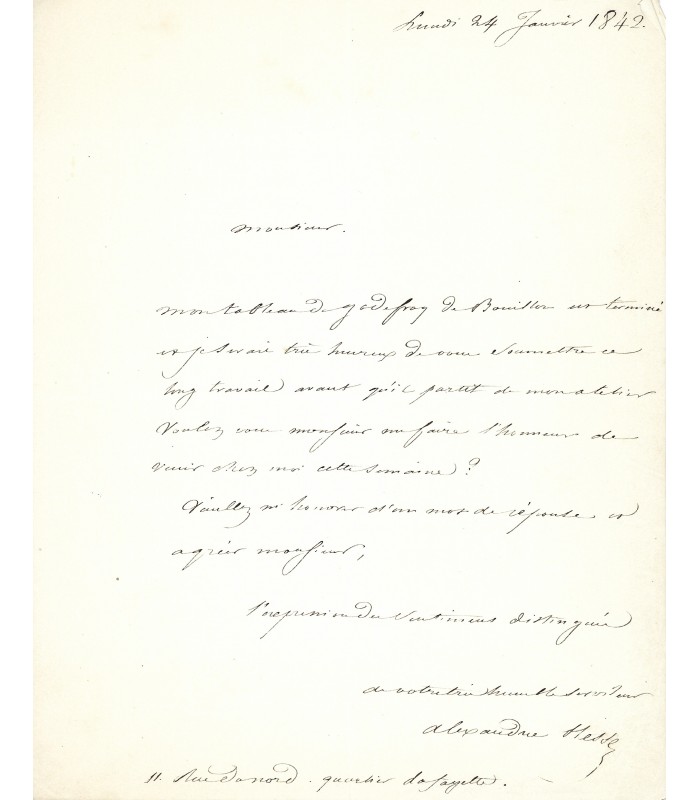 Lundi 24 Janvier 1842.
Monsieur.
Mon tableau de Godefroy de Bouillon est terminé
et je serait très heureux de vous soumettre ce
long travail avant qu'il partit de mon atelier
Voulez vous monsieur me faire l'honneur de
venir chez moi cette semaine ?
Veuillez m'honorer d'un mot de réponse et
agréer monsieur,
l'expression des sentimens distingués
de votre très humble serviteur
alexandre Hesse
11. Rue du nord. quartier Lafayette.